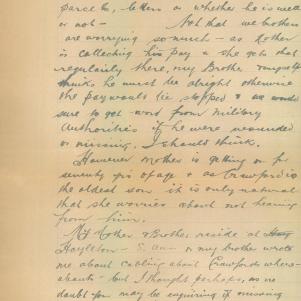 parcels, letters or whether he is well
or not - Not that we brothers
are worrying so much - as Mother
is collecting his pay & she gets that
regularly there, my Brother & myself
thinks he must be alright otherwise
the pay would be stopped & we would
sure to get word from Military
Authorities if he were wounded
or missing. I should think.
However Mother is getting on for
seventy yrs of age & as Crawford is
the oldest son it is only natural
that she worries about not hearing
from him.
My Mother & Brother reside at
S. Aus - or my brother wrote
me about cabling about Crawfords where-
abouts - but I thought perhaps, as no
doubt you may be enquiring if missing